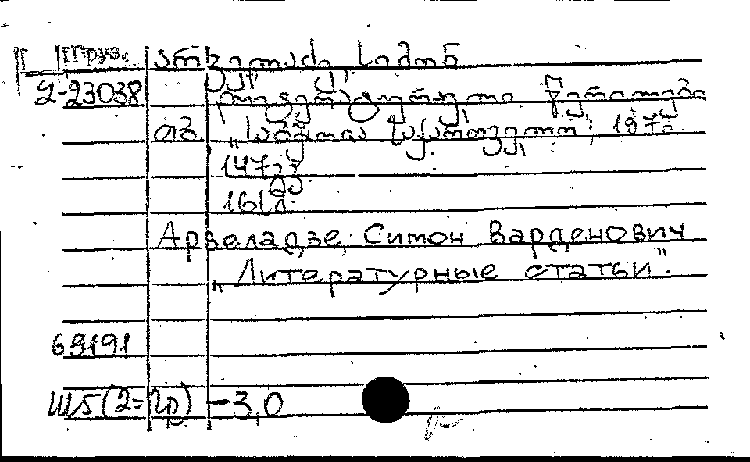 Груз. არველაძე სიმონ
У-23038 ლიტერატურული წერილები
თბ. „საბჭოთა საქართველო", 197
147გვ.
161
Арвеладзе, Симон Варденович
„Литературные статьи".
69191
Ш5(2=Гр) -3,0